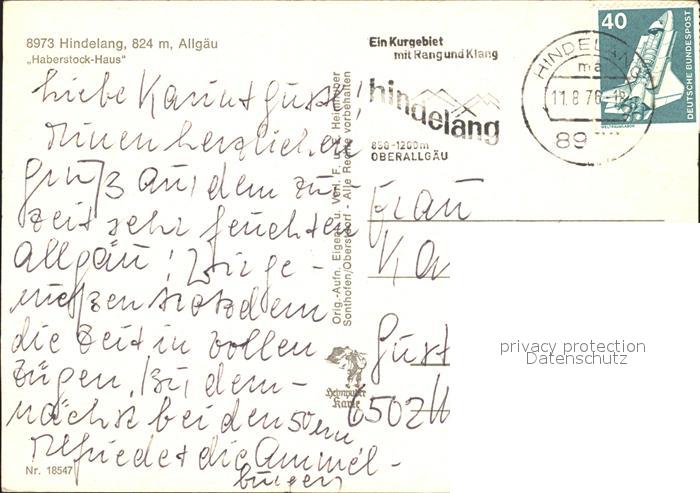 8973 Hindelang, 824 m, Allgäu
„Haberstock-Haus"
Liebe Karin + Gust!
Einen herzlichen
Gruß aus dem zur
Zeit sehr feuchten
Allgäu! Wir ge-
nießen trotzdem
die Zeit in vollen
Zügen. Bis dem-
nächst bei den 50ern
Elfriede + die Ammel-
burger
Nr. 18547
Orig.-Aufn. Eigent. u. Verl. F. u. K. Heimhuber
Sonthofen/Oberstdorf - Alle Rechte vorbehalten
Heimhuber
Karte
Ein Kurgebiet
mit Rang und Klang
hindelang
850-1200m
OBERALLGÄU
HINDELANG
ma
11.8.76-16
89
40
DEUTSCHE BUNDESPOST
WELTRAUMLABOR
Frau
Ka
Gust
6502
privacy protection
Datenschutz